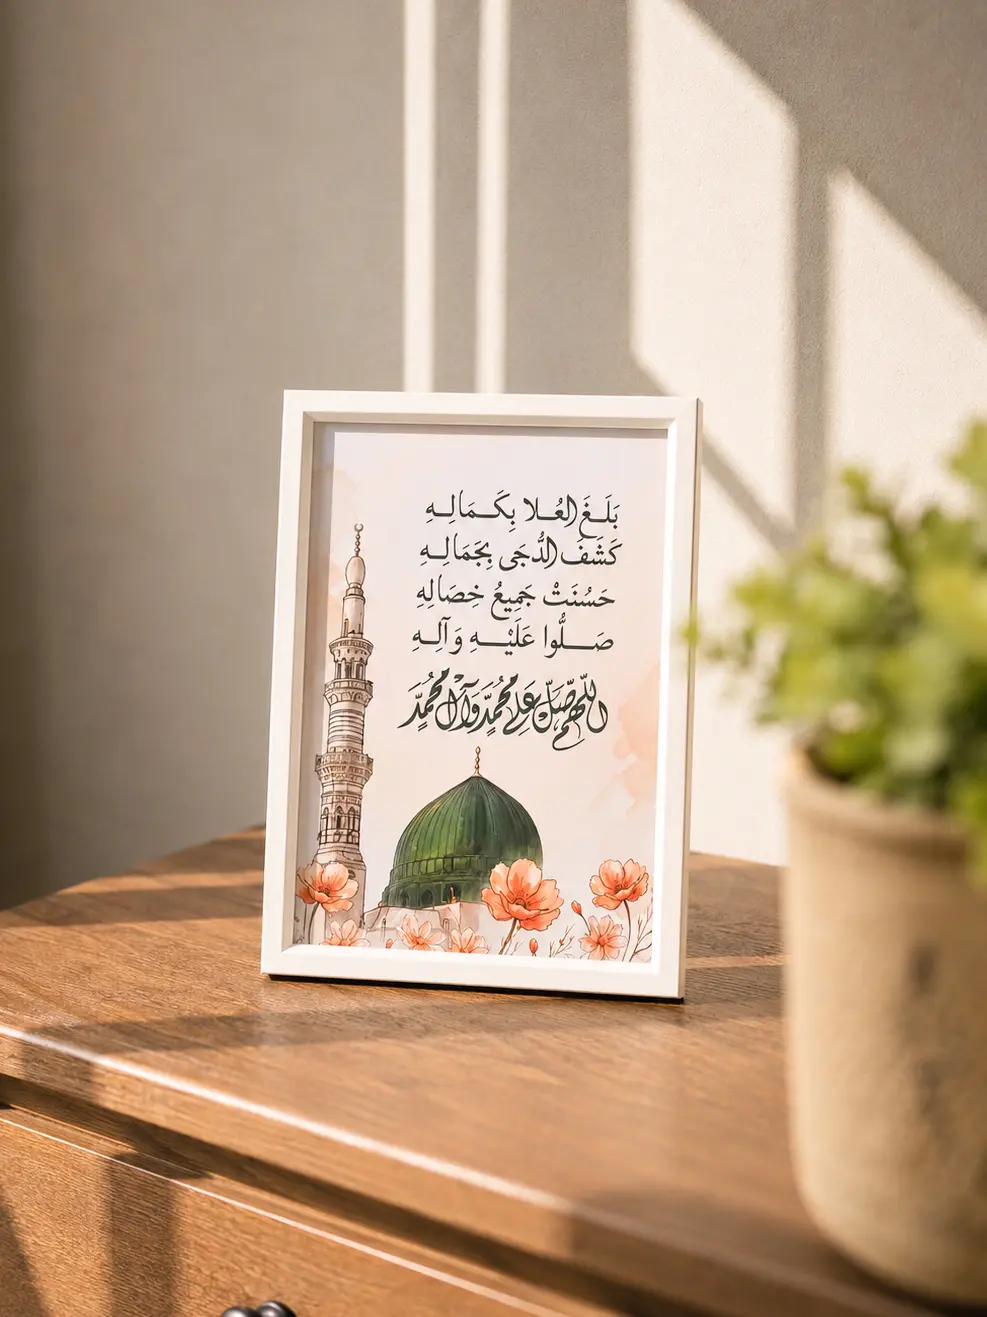 بَلَـغَ العُـلا بِكَـمَـالِـهِ
كَشَفَ الدُّجَى بِجَمَالِـهِ
حَسُنَتْ جَمِيعُ خِصَالِهِ
صَـلُّوا عَلَيْـهِ وَآلِـهِ
اللّهُمَّ صَلِّ عَلَى مُحَمَّدٍ وَآلِ مُحَمَّدٍ